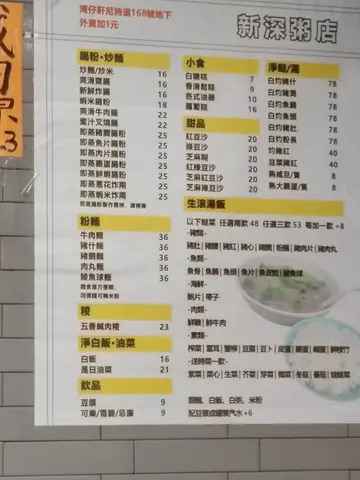 灣仔軒尼詩道168號地下
外賣加1元
新深粥店
腸粉·炒麵
炒麵/炒米 16
爽滑齋腸 16
新鮮炸腸 16
蝦米腸粉 18
爽滑牛肉腸 22
蜜汁叉燒腸 22
即蒸豬膶腸粉 25
即蒸魚片腸粉 25
即蒸肉片腸粉 25
即蒸 腸粉 25
即蒸鮮蝦腸粉 25
即蒸蔥花炸兩 25
即蒸菜遠炸兩 25
粉麵
牛肉麵 36
豬什麵 36
豬膶麵 36
肉丸麵 36
鯪魚球麵 36
糉
五香鹹肉糉 23
淨白飯·油菜
白飯 16
是日油菜 21
飲品
豆腐 9
可樂/雪碧/忌廉 9
小食
白糖糕 7
香滑鬆糕 9
各式油器 10
蘿蔔糕 16
甜品
紅豆沙 20
綠豆沙 20
芝麻糊 20
紅綠豆沙 20
芝麻紅豆沙 20
芝麻綠豆沙 20
淨餸/湯
白灼豬什 78
白灼豬膶 78
白灼魚腩 78
白灼魚頭 78
白灼豬肚 78
白灼粉腸 78
白灼豬紅 40
韮菜豬紅 40
熟咸旦/隻 8
熟大雞蛋/隻 8
生滾湯飯
以下餸菜 任選兩款 48 任選三款 53 每加一 +8
-豬類-
豬肚|豬腰|豬紅|豬心|豬膶|粉腸|豬肉片|豬肉丸
-魚類-
魚骨|魚腩|魚頭|魚片|魚皮餃|鯪魚球
-海鮮-
鮑片|帶子
-肉類-
鮮雞|鮮牛肉
-素類-
榨菜 皮蛋 雞蛋 鹹蛋 鮮枝竹
-送時菜一款-
紫菜|菜心|生菜|芥菜|芽菜|椰菜|冬菇|番茄
跟麵、白飯、白粥、米粉
配豆腐或罐裝汽水+6